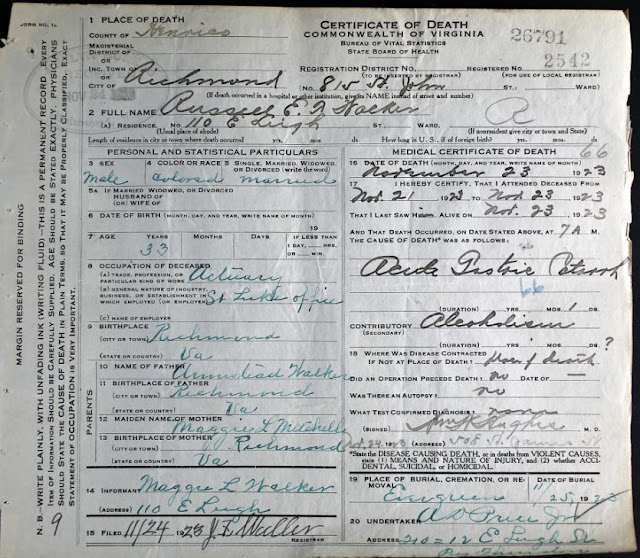 FORM NO. 1.
MARGIN RESERVED FOR BINDING
N. B.—WRITE PLAINLY, WITH UNFADING INK (WRITING FLUID)—THIS IS A PERMANENT RECORD. EVERY
ITEM OF INFORMATION SHOULD BE CAREFULLY SUPPLIED. AGE SHOULD BE STATED EXACTLY. PHYSICIANS
SHOULD STATE THE CAUSE OF DEATH IN PLAIN TERMS, SO THAT IT MAY BE PROPERLY CLASSIFIED. EXACT
STATEMENT OF OCCUPATION IS VERY IMPORTANT.
9
1 PLACE OF DEATH
COUNTY OF Henrico
MAGISTERIAL
DISTRICT OF
OR
INC. TOWN OF
OR
CITY OF Richmond
CERTIFICATE OF DEATH
COMMONWEALTH OF VIRGINIA
BUREAU OF VITAL STATISTICS
STATE BOARD OF HEALTH
26791
2542
REGISTRATION DISTRICT NO. REGISTERED NO.
(TO BE INSERTED BY REGISTRAR) (FOR USE OF LOCAL REGISTRAR)
NO. 815 St. John ST.: WARD)
(If death occurred in a hospital or other institution, give its NAME instead of street and number)
2 FULL NAME Russell E. T. Walker
(A) RESIDENCE. NO. 110 E Leigh ST., WARD.
(Usual place of abode) (If nonresident give city or town and State)
Length of residence in city or town where death occurred yrs. mos. ds. How long in U. S., if of foreign birth? yrs. mos. ds.
PERSONAL AND STATISTICAL PARTICULARS
3 SEX 4 COLOR OR RACE 5 SINGLE, MARRIED, WIDOWED,
OR DIVORCED (write the word)
Male colored married
5A IF MARRIED, WIDOWED, OR DIVORCED
HUSBAND OF
(OR) WIFE OF
6 DATE OF BIRTH (MONTH, DAY, AND YEAR, WRITE NAME OF MONTH)
19
7 AGE YEARS MONTHS DAYS IF LESS THAN
1 DAY, HRS.
OR MIN.
33
8 OCCUPATION OF DECEASED
(A) TRADE, PROFESSION, OR
PARTICULAR KIND OF WORK Actuary
(B) GENERAL NATURE OF INDUSTRY,
BUSINESS, OR ESTABLISHMENT IN
WHICH EMPLOYED (OR EMPLOYER) St Luke office
(C) NAME OF EMPLOYER
9 BIRTHPLACE
(CITY OR TOWN) Richmond
(STATE OR COUNTRY) Va
PARENTS
10 NAME OF FATHER Armstead Walker
11 BIRTHPLACE OF FATHER
(CITY OR TOWN) Richmond
(STATE OR COUNTRY) Va
12 MAIDEN NAME OF MOTHER Maggie L Mitchell
13 BIRTHPLACE OF MOTHER
(CITY OR TOWN) Richmond
(STATE OR COUNTRY) Va
14 INFORMANT Maggie L Walker
(ADDRESS) 110 E Leigh
15 FILED 11/24 1923
REGISTRAR
MEDICAL CERTIFICATE OF DEATH
66
16 DATE OF DEATH (MONTH, DAY, AND YEAR, WRITE NAME OF MONTH)
November 23 1923
17 I HEREBY CERTIFY, THAT I ATTENDED DECEASED FROM
Nov. 21 1923 TO Nov 23 1923
THAT I LAST SAW HIM ALIVE ON Nov. 23 1923
AND THAT DEATH OCCURRED, ON DATE STATED ABOVE, AT 7 A M.
THE CAUSE OF DEATH* WAS AS FOLLOWS:
Acute Gastric Catarrh
66
(DURATION) YRS. MOS. 1 DS.
CONTRIBUTORY Alcoholism
(SECONDARY)
(DURATION) YRS. MOS. DS. ?
18 WHERE WAS DISEASE CONTRACTED
IF NOT AT PLACE OF DEATH? Place of death
DID AN OPERATION PRECEDE DEATH? no DATE OF —
WAS THERE AN AUTOPSY? no
WHAT TEST CONFIRMED DIAGNOSIS? none
(SIGNED) Wm H Hughes M. D.
Nov. 24 1923 (ADDRESS) St. James St.
*State the DISEASE CAUSING DEATH, or in deaths from VIOLENT CAUSES,
state (1) MEANS AND NATURE OF INJURY, and (2) whether ACCI-
DENTAL, SUICIDAL, or HOMICIDAL.
19 PLACE OF BURIAL, CREMATION, OR REMOVAL DATE
Evergreen 11/25, 1923
20 UNDERTAKER A D Price Jr
ADDRESS 210-12 E Leigh St